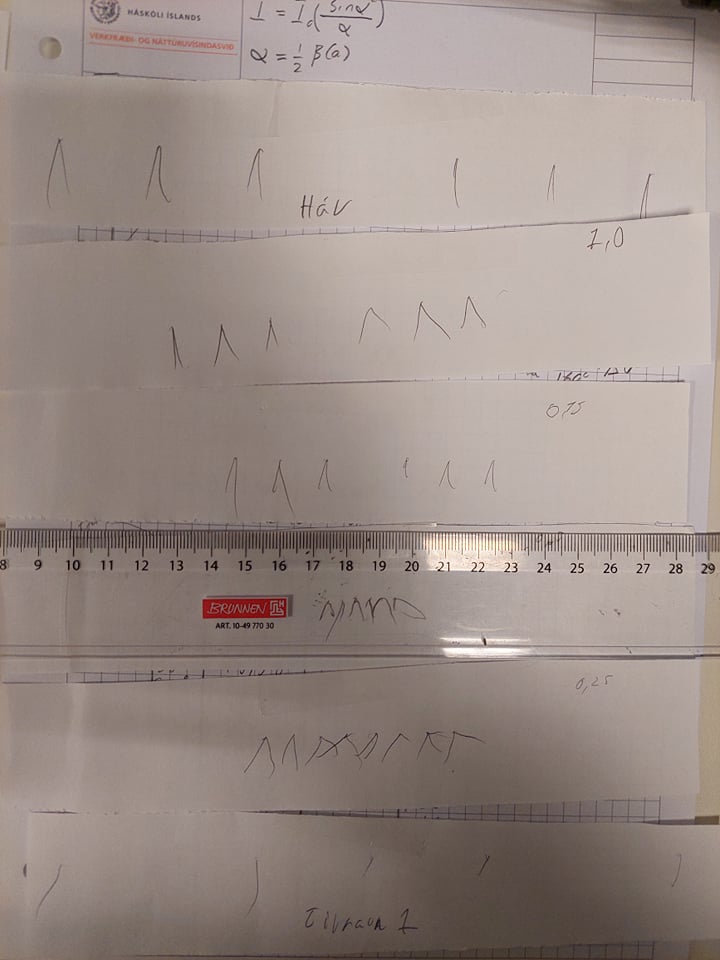 HÁSKÓLI ÍSLANDS
VERKFRÆÐI- OG NÁTTÚRUVÍSINDASVIÐ
I = I₀(sinα/α)
α = 1/2 β(a)
HáV
1,0
0,75
8 9 10 11 12 13 14 15 16 17 18 19 20 21 22 23 24 25 26 27 28 29
BRUNNEN
ART. 10-49 770 30
0,25
Tilraun 1